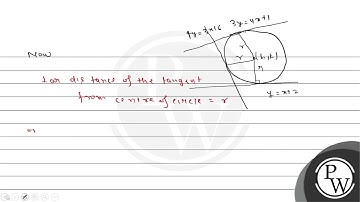 4y=3x+6 3y=4x+1
Now
r
r (h,k)
r
Lar distance of the tangent
from centre of circle = r
y=x+2
or
P
W
P
W